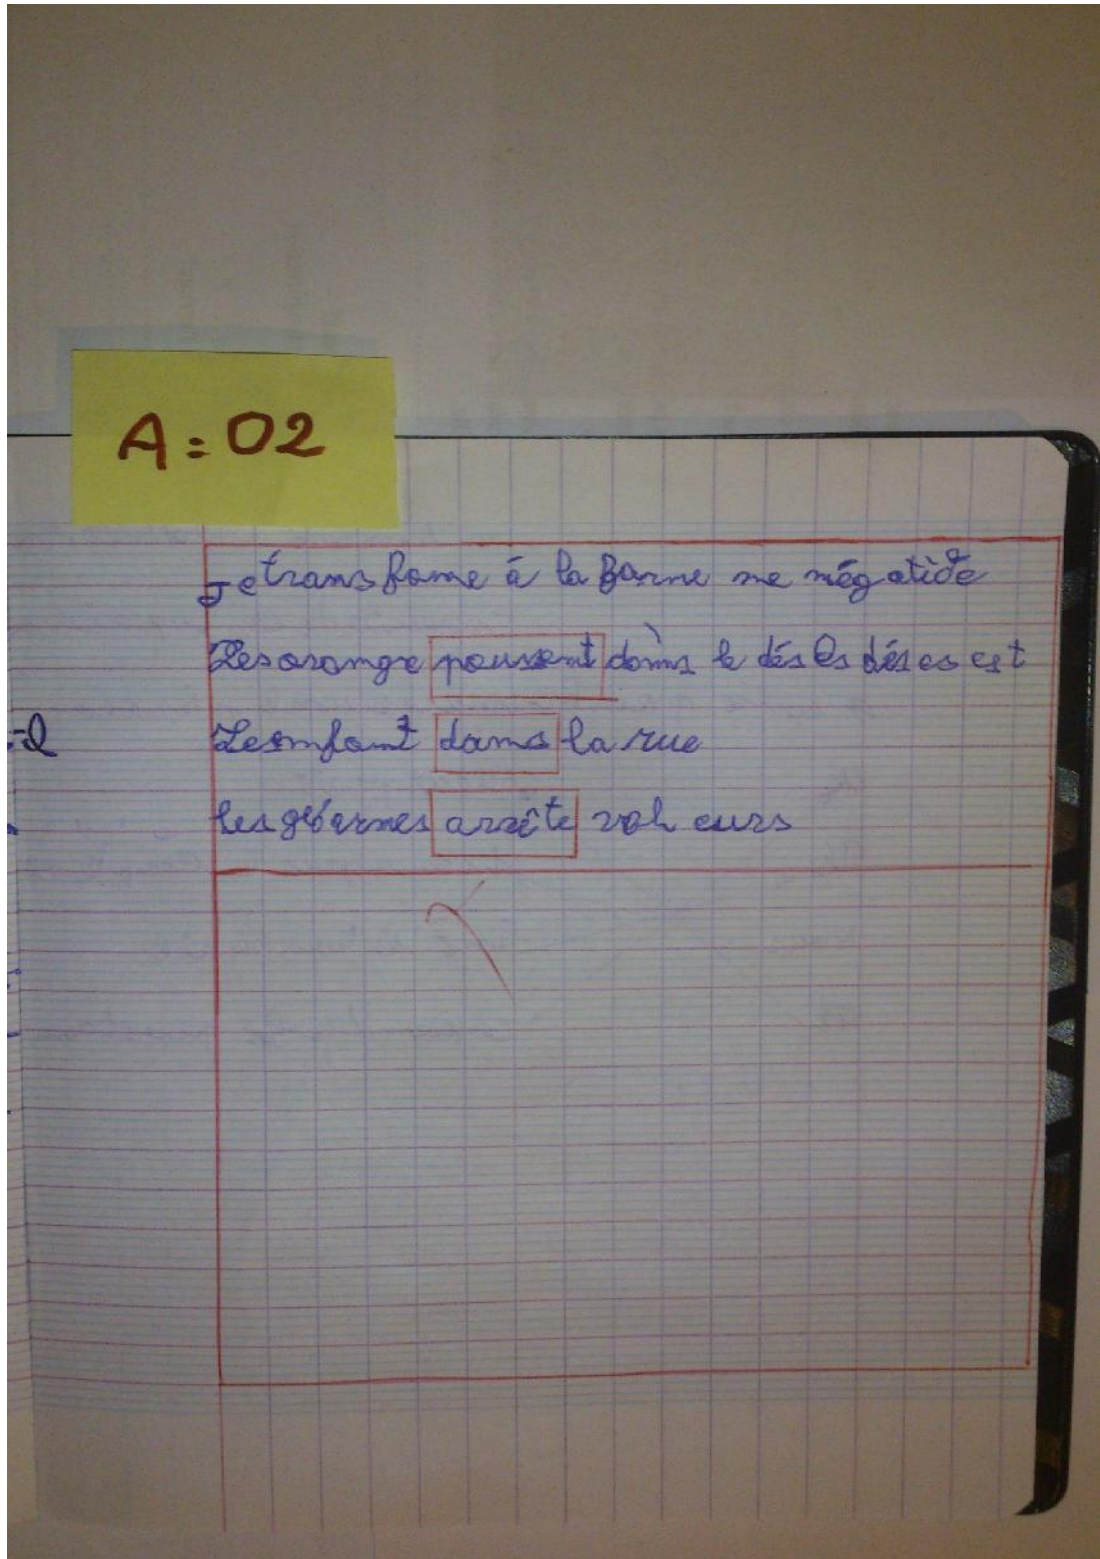 A : 02
Je transfome à la farme me négatide
Les orange poussent dans le dés les dés es est
-l
Les enfant dans la rue
les gébarmes arrête voh eurs